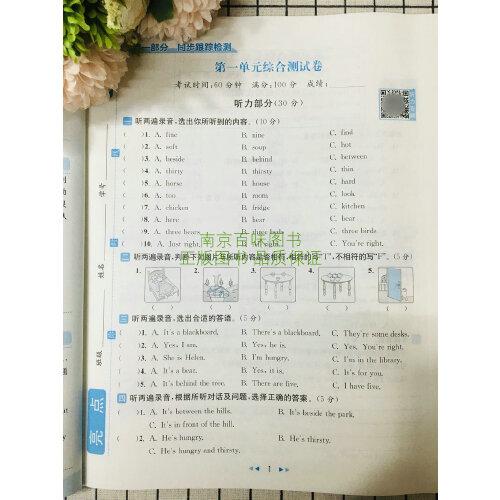 第一部分 同步跟踪检测
第一单元综合测试卷
考试时间:60分钟 满分:100分 成绩:
听力部分(30分)
一 听两遍录音,选出你所听到的内容。(10分)
( )1. A. fine B. nine C. find
( )2. A. soft B. soup C. hot
( )3. A. beside B. behind C. between
( )4. A. thirty B. thirsty C. thin
( )5. A. horse B. house C. hard
( )6. A. too B. room C. look
( )7. A. chicken B. fridge C. kitchen
( )8. A. here B. hear C. bear
( )9. A. three bears B. three beds C. three birds
( )10. A. Just right. C. You're right.
南京百味图书
正版图书品质保证
二 听两遍录音,判断下列图片与所听内容是否相符,相符的写"T",不相符的写"F"。(5分)
1. 2. 3. 4. 5.
三 听两遍录音,选出合适的答语。(5分)
( )1. A. It's a blackboard. B. There's a blackboard. C. They're some desks.
( )2. A. Yes, I am. B. Yes, he is. C. Yes. You're right.
( )3. A. She is Helen. B. I'm hungry. C. I'm in the library.
( )4. A. It's a bear. B. Yes, it is. C. It's for you.
( )5. A. It's behind the tree. B. There are five. C. I have five.
四 听两遍录音,根据所听对话及问题,选择正确的答案。(5分)
( )1. A. It's between the hills. B. It's beside the park.
C. It's in front of the hill.
( )2. A. He's hungry. B. He's thirsty.
C. He's hungry and thirsty.
1
学号
姓名
班级
亮点